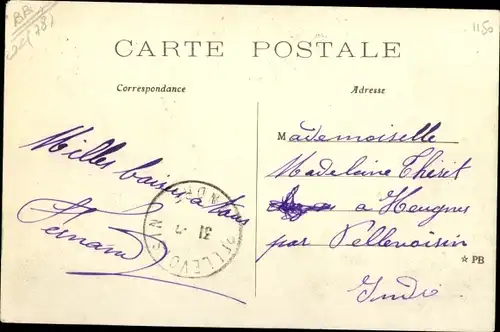 BB
1150
CARTE POSTALE
Correspondance
Adresse
Milles baisers à tous
Fernand
Mademoiselle
Madelaine Théret
a Heugnes
par Pellevoisin
Indre
* PB
PELLEVOISIN